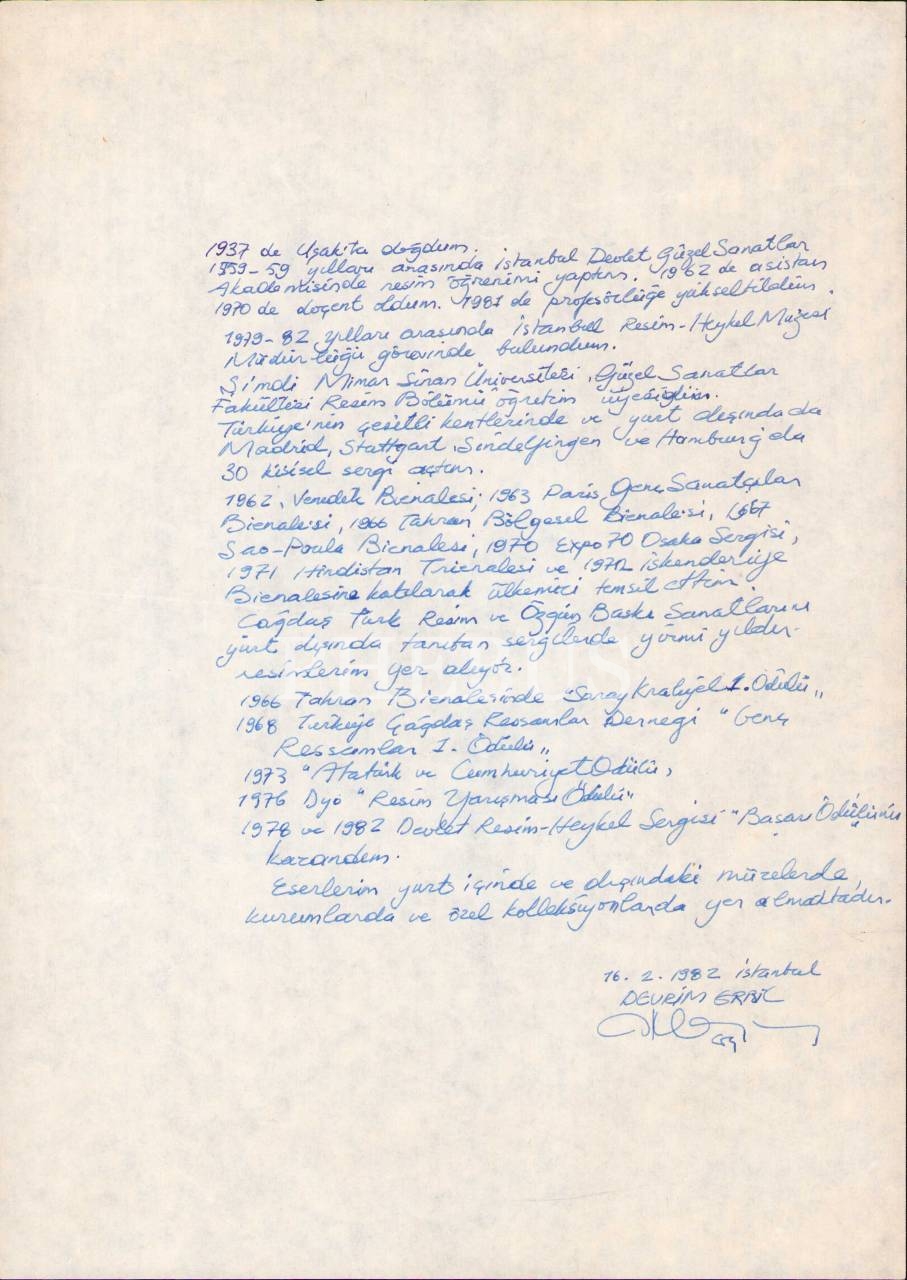 1937 de Uşak'ta doğdum.
1959-59 yılları arasında İstanbul Devlet Güzel Sanatlar
Akademisinde resim öğrenimi yaptım. 1962 de asistan
1970 de doçent oldum. 1981 de profesörlüğe yükseltildim.
1979-82 yılları arasında İstanbul Resim-Heykel Müzesi
Müdürlüğü görevinde bulundum.
Şimdi Mimar Sinan Üniversitesi, Güzel Sanatlar
Fakültesi Resim Bölümü öğretim üyesiyim.
Türkiye'nin çeşitli kentlerinde ve yurt dışında da
Madrid, Stuttgart, Sindelfingen ve Hamburg'da
30 kişisel sergi açtım.
1962, Venedik Bienalesi, 1963 Paris, Genç Sanatçılar
Bienalesi, 1966 Tahran Bölgesel Bienalesi, 1967
Sao-Poula Bienalesi, 1970 Expo 70 Osaka Sergisi,
1971 Hindistan Trienalesi ve 1972 İskenderiye
Bienalesine katılarak ülkemizi temsil ettim.
Çağdaş Türk Resim ve Özgün Baskı Sanatlarını
yurt dışında tanıtan sergilerde yirmi yıldır
resimlerim yer alıyor.
1966 Tahran Bienalesinde "Saray Kraliyet 1. Ödülü"
1968 Türkiye Çağdaş Ressamlar Derneği "Genç
Ressamlar 1. Ödülü"
1973 "Atatürk ve Cumhuriyet Ödülü,
1976 Dyo "Resim Yarışması Ödülü"
1978 ve 1982 Devlet Resim-Heykel Sergisi "Başarı Ödülü"nü
kazandım.
Eserlerim yurt içinde ve dışındaki müzelerde,
kurumlarda ve özel kolleksiyonlarda yer almaktadır.
16.2.1982 İstanbul
DEVRİM ERBİL